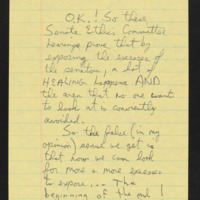 O.K.! So these
Senate Ethics Committee
hearings prove that by
exposing the excesses of
the senators, a lot of
HEALING happens AND
the area that no one wants
to look at is conveniently
avoided.
So the false (in my
opinion) sense we get is
that now we can look
for more & more excesses
to expose... The
beginning of the end!